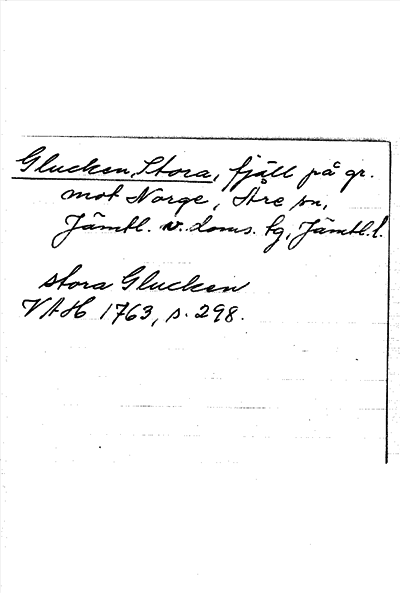 Glucken, Stora, fjäll på gr.
mot Norge, Åre sn,
Jämtl. v. doms. tg, Jämtl. l.
stora Glucken
VAH 1763, s. 298.